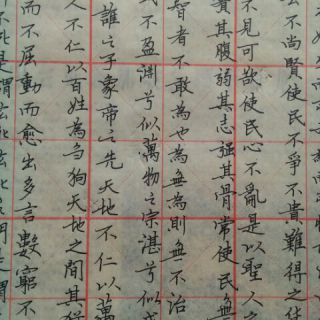 不尚賢使民不爭不貴難得之貨
不見可欲使民心不亂是以聖人
其腹弱其志強其骨常使民無
智者不敢為也為無為則無不治
不盈淵兮似萬物之宗湛兮似或
誰之子象帝之先天地不仁以萬
人不仁以百姓為芻狗天地之間其猶
而不屈動而愈出多言數窮不